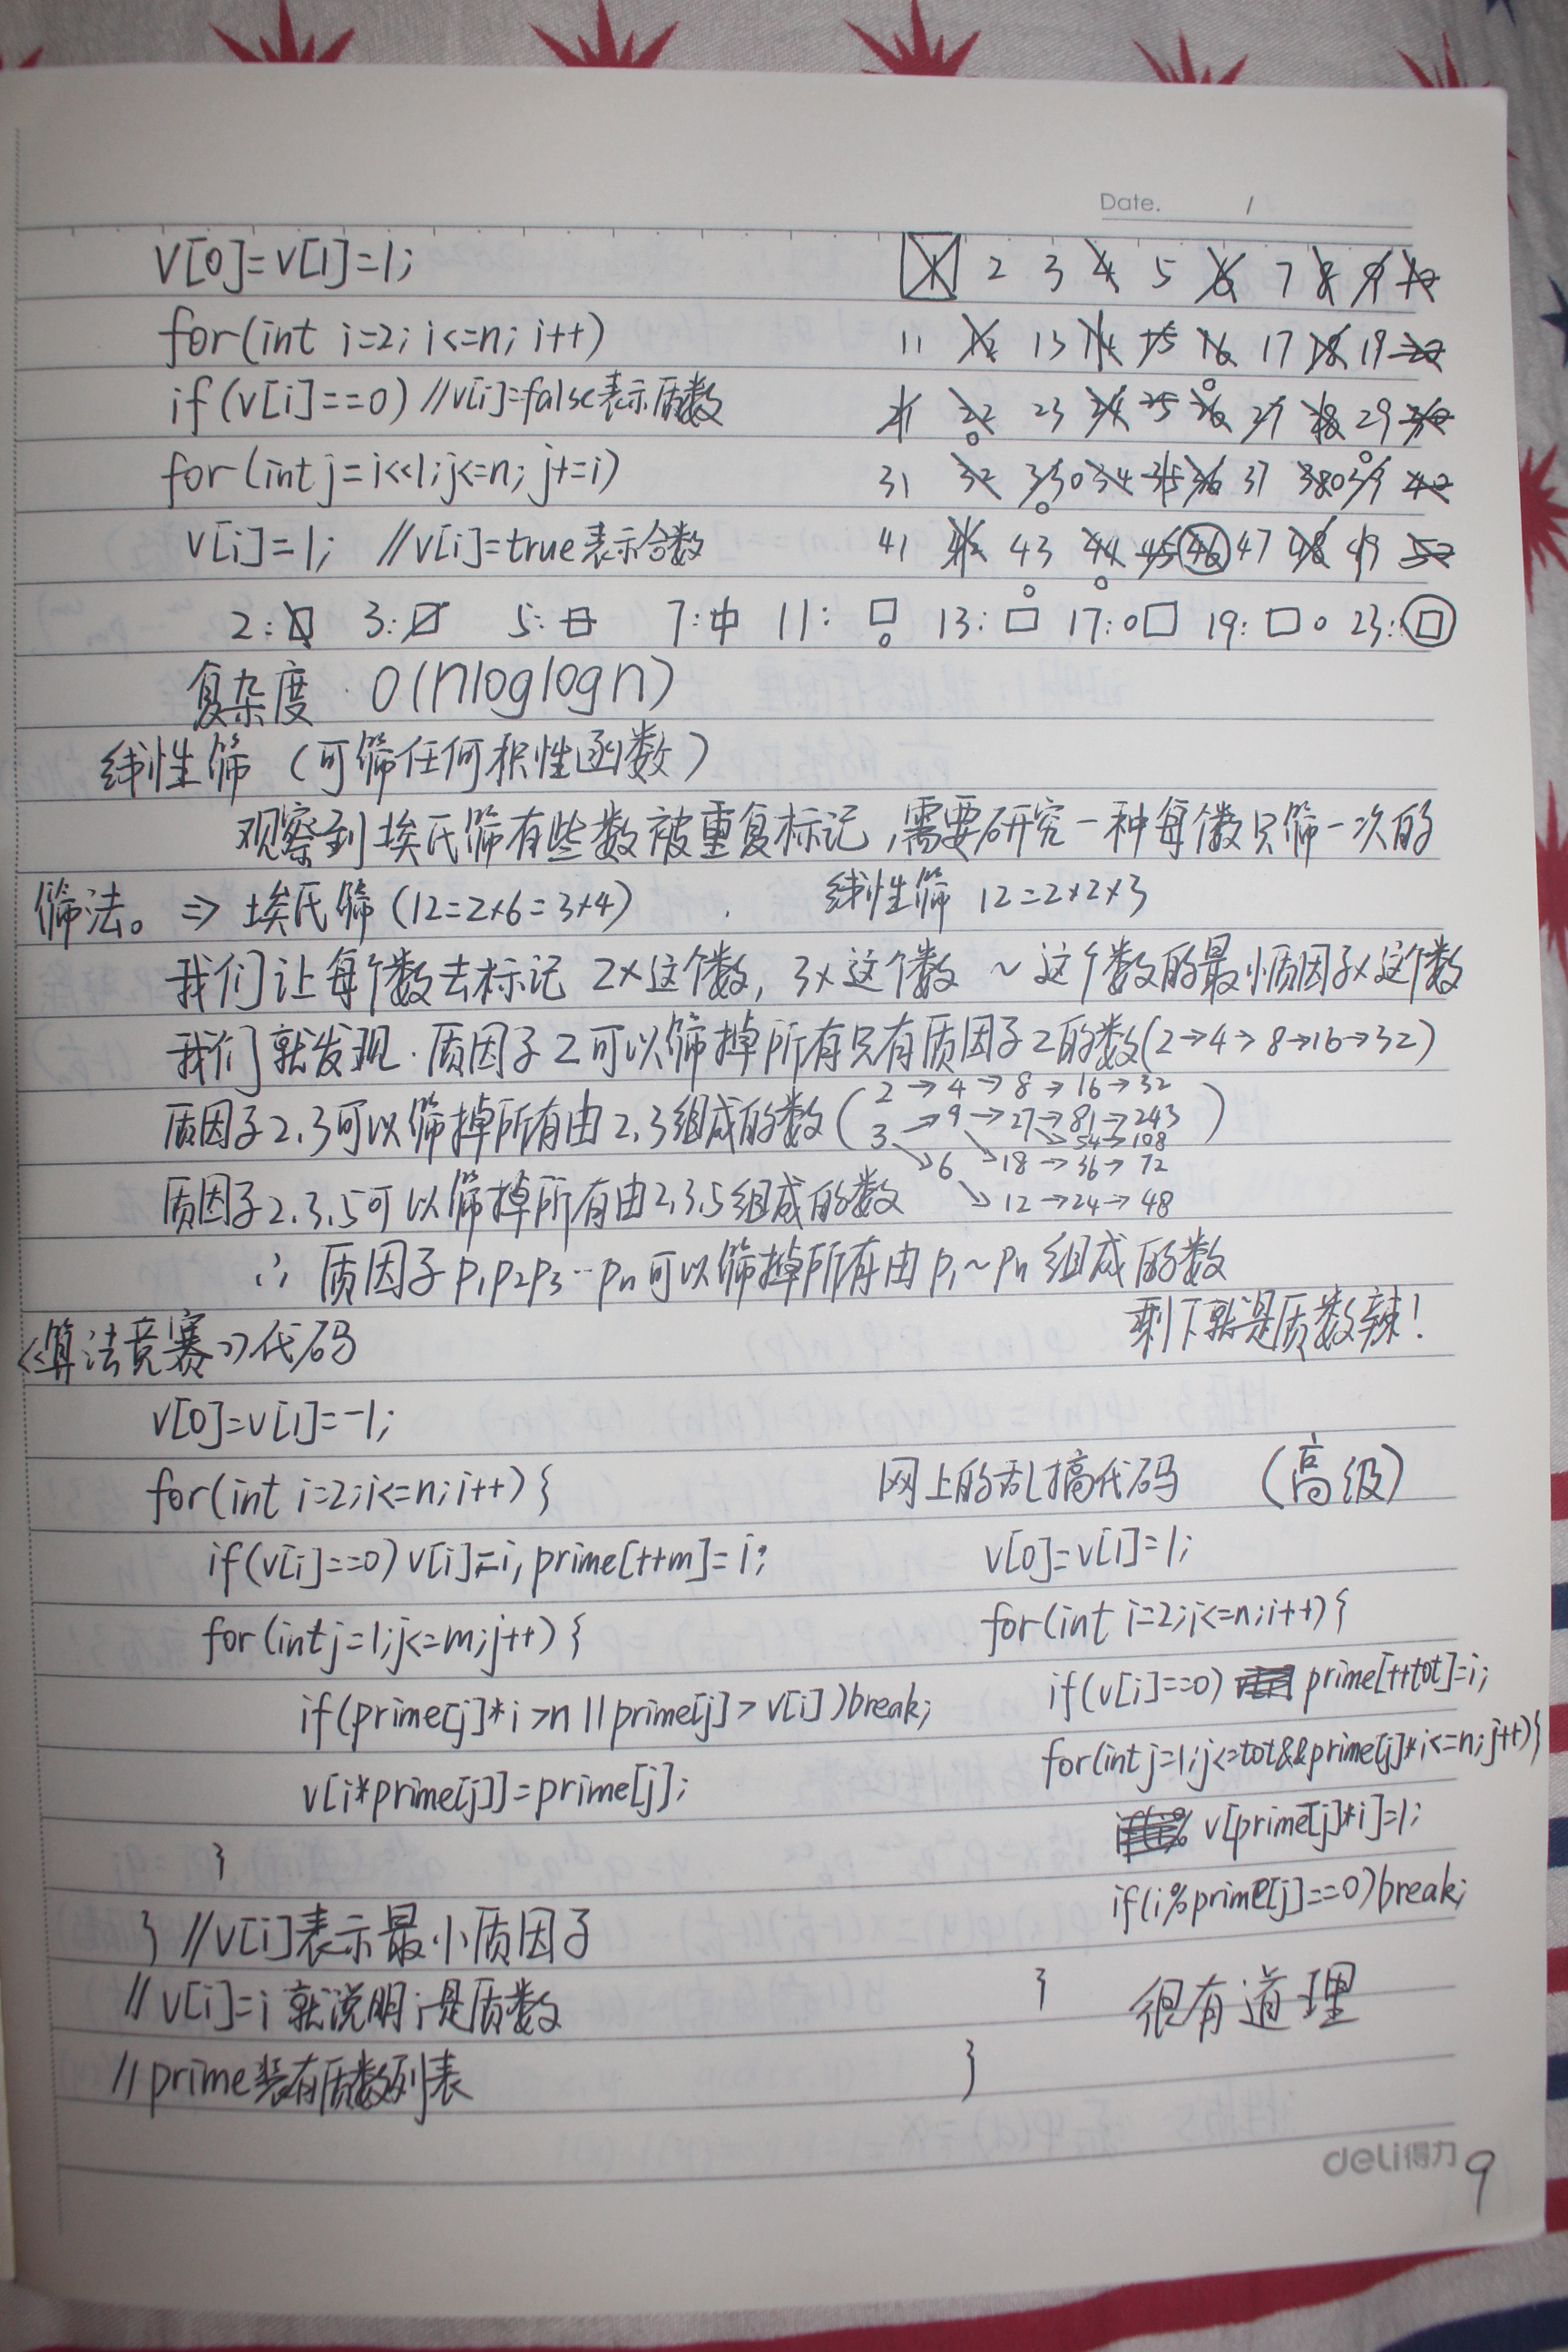 Date. /
v[0]=v[1]=1;
for(int i=2;i<=n;i++)
if(v[i]==0) //v[i]=false表示质数
for(int j=i<<1;j<=n;j+=i)
v[j]=1; //v[i]=true表示合数
1 2 3 4 5 6 7 8 9 10
11 12 13 14 15 16 17 18 19 20
21 22 23 24 25 26 27 28 29 30
31 32 33 34 35 36 37 38 39 40
41 42 43 44 45 46 47 48 49 50
2: 3: 5: 7: 11: 13: 17: 19: 23:
复杂度 O(nloglogn)
线性筛（可筛任何积性函数）
观察到埃氏筛有些数被重复标记,需要研究一种每个数只筛一次的
筛法。⇒ 埃氏筛(12=2×6=3×4) 线性筛 12=2×2×3
我们让每个数去标记 2×这个数, 3×这个数 ~ 这个数的最小质因子×这个数
我们就发现.质因子2可以筛掉所有只有质因子2的数(2→4→8→16→32)
质因子2.3可以筛掉所有由2.3组成的数(
2→4→8→16→32
3→9→27→81→243
→54→108
)
→6 →18→36→72
质因子2.3.5可以筛掉所有由2.3.5组成的数 →12→24→48
∴ 质因子p₁p₂p₃…pₙ可以筛掉所有由p₁~pₙ组成的数
剩下就是质数辣!
《算法竞赛》代码
v[0]=v[1]=-1;
for(int i=2;i<=n;i++){
if(v[i]==0)v[i]=i,prime[++m]=i;
for(int j=1;j<=m;j++){
if(prime[j]*i>n||prime[j]>v[i])break;
v[i*prime[j]]=prime[j];
}
} //v[i]表示最小质因子
//v[i]=i就说明i是质数
//prime装有质数列表
网上的乱搞代码 (高级)
v[0]=v[1]=1;
for(int i=2;i<=n;i++){
if(v[i]==0) prime[++tot]=i;
for(int j=1;j<=tot&&prime[j]*i<=n;j++){
v[prime[j]*i]=1;
if(i%prime[j]==0)break;
} 很有道理
}
deli得力 9